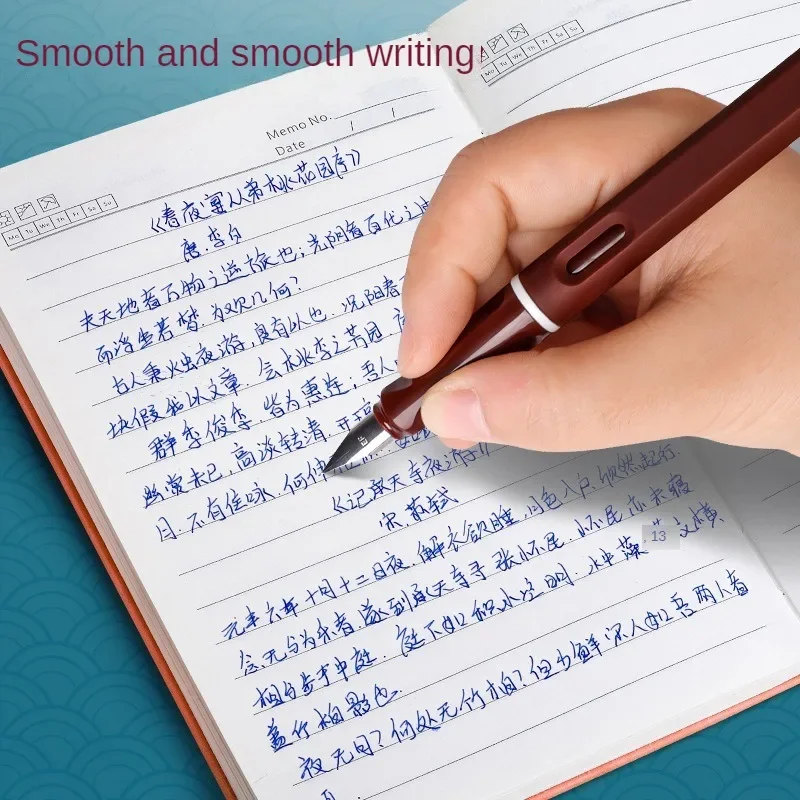 Smooth and smooth writing
Mo Tu We Th Fr Sa Su
Memo No.
Date / /
Mo Tu We Th Fr Sa Su
《春夜宴从弟桃花园序》
唐·李白
夫天地者万物之逆旅也;光阴者百代之过
而浮生若梦,为欢几何?
古人秉烛夜游,良有以也.况阳春
块假我以文章.会桃李之芳园,
群季俊秀,皆为惠连;吾人
幽赏未已,高谈转清.开琼
月.不有佳咏,何伸
《记承天寺夜游》
宋 苏轼
元丰六年十月十二日夜,解衣欲睡,月色入户,欣然起行.
念无与为乐者,遂到承天寺寻张怀民.怀民亦未寝
相与步于中庭.庭下如积水空明,水中藻、荇交横
13
盖竹柏影也.
夜无月?何处无竹柏?但少闲人如吾两人者
耳.